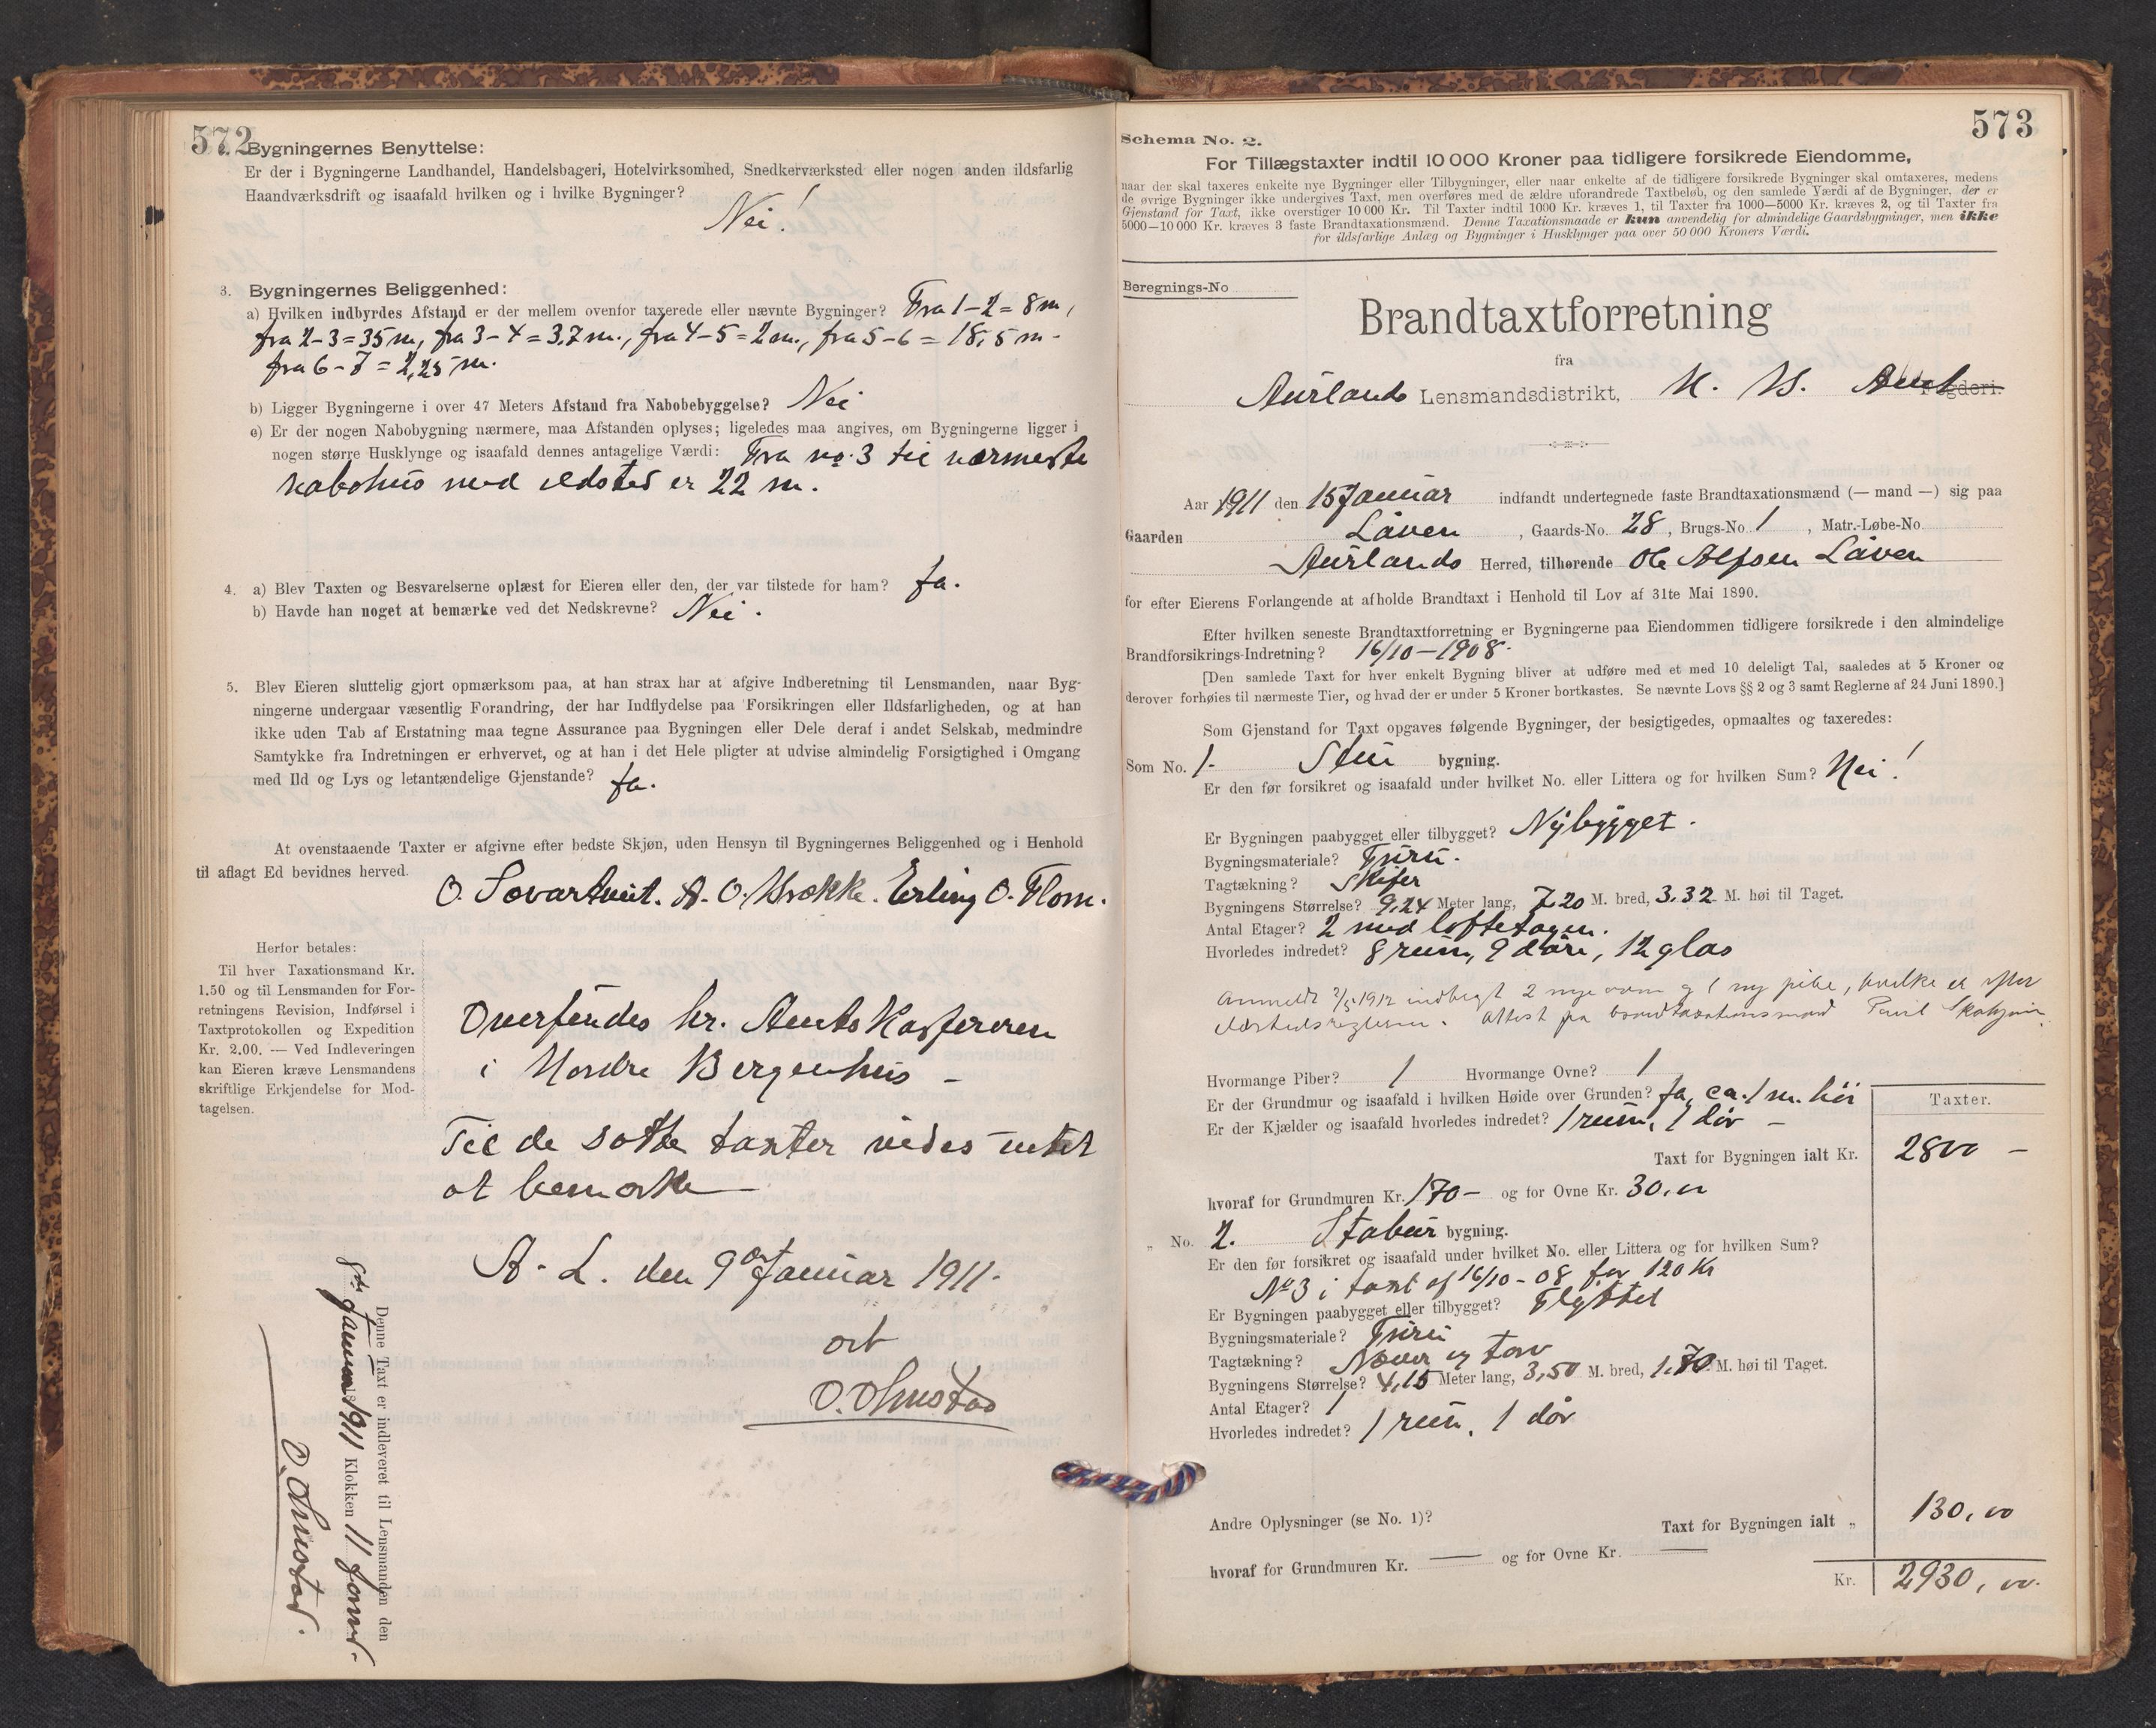 572
Bygningernes Benyttelse:
Er der i Bygningerne Landhandel, Handelsbageri, Hotelvirksomhed, Snedkerværksted eller nogen anden ildsfarlig
Haandværksdrift og isaafald hvilken og i hvilke Bygninger?
Nei!
3. Bygningernes Beliggenhed:
a) Hvilken indbyrdes Afstand er der mellem ovenfor taxerede eller nævnte Bygninger? Fra 1-2 = 8 m,
fra 2-3 = 35 m, fra 3-4 = 3,7 m., fra 4-5 = 2 m., fra 5-6 = 18,5 m -
fra 6-7 = 2,25 m.
b) Ligger Bygningerne i over 47 Meters Afstand fra Nabobebyggelse? Nei
c) Er der nogen Nabobygning nærmere, maa Afstanden oplyses; ligeledes maa angives, om Bygningerne ligger i
nogen større Husklynge og isaafald dennes antagelige Værdi: Fra no. 3 til nærmeste
nabohus med ildsted er 22 m.
4. a) Blev Taxten og Besvarelserne oplæst for Eieren eller den, der var tilstede for ham? Ja.
b) Havde han noget at bemærke ved det Nedskrevne? Nei.
5. Blev Eieren sluttelig gjort opmærksom paa, at han strax har at afgive Indberetning til Lensmanden, naar Byg-
ningerne undergaar væsentlig Forandring, der har Indflydelse paa Forsikringen eller Ildsfarligheden, og at han
ikke uden Tab af Erstatning maa tegne Assurance paa Bygningen eller Dele deraf i andet Selskab, medmindre
Samtykke fra Indretningen er erhvervet, og at han i det Hele pligter at udvise almindelig Forsigtighed i Omgang
med Ild og Lys og letantændelige Gjenstande? Ja.
At ovenstaaende Taxter er afgivne efter bedste Skjøn, uden Hensyn til Bygningernes Beliggenhed og i Henhold
til aflagt Ed bevidnes herved.
O. Sovarhveit. A. O. Brække. Erling O. Flom.
Herfor betales:
Til hver Taxationsmand Kr.
1.50 og til Lensmanden for For-
retningens Revision, Indførsel i
Taxtprotokollen og Expedition
Kr. 2.00. — Ved Indleveringen
kan Eieren kræve Lensmandens
skriftlige Erkjendelse for Mod-
tagelsen.
Oversendes hr. Amtskassereren
i Nordre Bergenhus -
Til de satte taxter vides intet
at bemærke -
A. L. den 9de Januar 1911.
O. Ohnstad
Denne Taxt er indleveret til Lensmanden den
8de Januar 1911 Klokken 11 form.
O. Ohnstad.
573
Schema No. 2.
For Tillægstaxter indtil 10 000 Kroner paa tidligere forsikrede Eiendomme,
naar der skal taxeres enkelte nye Bygninger eller Tilbygninger, eller naar enkelte af de tidligere forsikrede Bygninger skal omtaxeres, medens
de øvrige Bygninger ikke undergives Taxt, men overføres med de ældre uforandrede Taxtbeløb, og den samlede Værdi af de Bygninger, der er
Gjenstand for Taxt, ikke overstiger 10 000 Kr. Til Taxter indtil 1000 Kr. kræves 1, til Taxter fra 1000—5000 Kr. kræves 2, og til Taxter fra
5000—10 000 Kr. kræves 3 faste Brandtaxationsmænd. Denne Taxationsmaade er kun anvendelig for almindelige Gaardsbygninger, men ikke
for ildsfarlige Anlæg og Bygninger i Husklynger paa over 50 000 Kroners Værdi.
Beregnings-No
Brandtaxtforretning
fra
Aurlands Lensmandsdistrikt, N. B. Amt Fogderi.
Aar 1911 den 15 Januar indfandt undertegnede faste Brandtaxationsmænd (— mand —) sig paa
Gaarden Låven, Gaards-No. 28, Brugs-No. 1, Matr.-Løbe-No.
Aurlands Herred, tilhørende Ole Alfsen Låven
for efter Eierens Forlangende at afholde Brandtaxt i Henhold til Lov af 31te Mai 1890.
Efter hvilken seneste Brandtaxtforretning er Bygningerne paa Eiendommen tidligere forsikrede i den almindelige
Brandforsikrings-Indretning? 16/10-1908.
[Den samlede Taxt for hver enkelt Bygning bliver at udføre med et med 10 deleligt Tal, saaledes at 5 Kroner og
derover forhøies til nærmeste Tier, og hvad der er under 5 Kroner bortkastes. Se nævnte Lovs §§ 2 og 3 samt Reglerne af 24 Juni 1890.]
Som Gjenstand for Taxt opgaves følgende Bygninger, der besigtigedes, opmaaltes og taxeredes:
Som No. 1. Stu bygning.
Er den før forsikret og isaafald under hvilket No. eller Littera og for hvilken Sum? Nei!
Er Bygningen paabygget eller tilbygget? Nybygget.
Bygningsmateriale? Furu.
Tagtækning? Skifer
Bygningens Størrelse? 9,24 Meter lang, 7.20 M. bred, 3.32 M. høi til Taget.
Antal Etager? 2 med loftetagen.
Hvorledes indredet? 8 rum, 9 døre, 12 glas
Anmeldt 2/5 1912 indlagt 2 nye ovne og 1 ny pibe, hvilke er efter
Attest fra brandtaxationsmand
Hvormange Piber? 1 Hvormange Ovne? 1
Er der Grundmur og isaafald i hvilken Høide over Grunden? Ja, ca. 1 m. høi
Er der Kjælder og isaafald hvorledes indredet? 1 rum, 1 dør -
Taxter.
Taxt for Bygningen ialt Kr. 2800 -
hvoraf for Grundmuren Kr. 170 - og for Ovne Kr. 30,00
„ No. 2. Stabur bygning.
Er den før forsikret og isaafald under hvilket No. eller Littera og for hvilken Sum?
No 3 i taxt af 16/10-08 for 120 Kr
Er Bygningen paabygget eller tilbygget? Flyttet
Bygningsmateriale? Furu
Tagtækning? Næver og torv
Bygningens Størrelse? 4,15 Meter lang, 3,50 M. bred, 1.70 M. høi til Taget.
Antal Etager? 1
Hvorledes indredet? 1 rum, 1 dør
Andre Oplysninger (se No. 1)? Taxt for Bygningen ialt „ 130,00
hvoraf for Grundmuren Kr. — og for Ovne Kr. —
Kr. 2930,00.